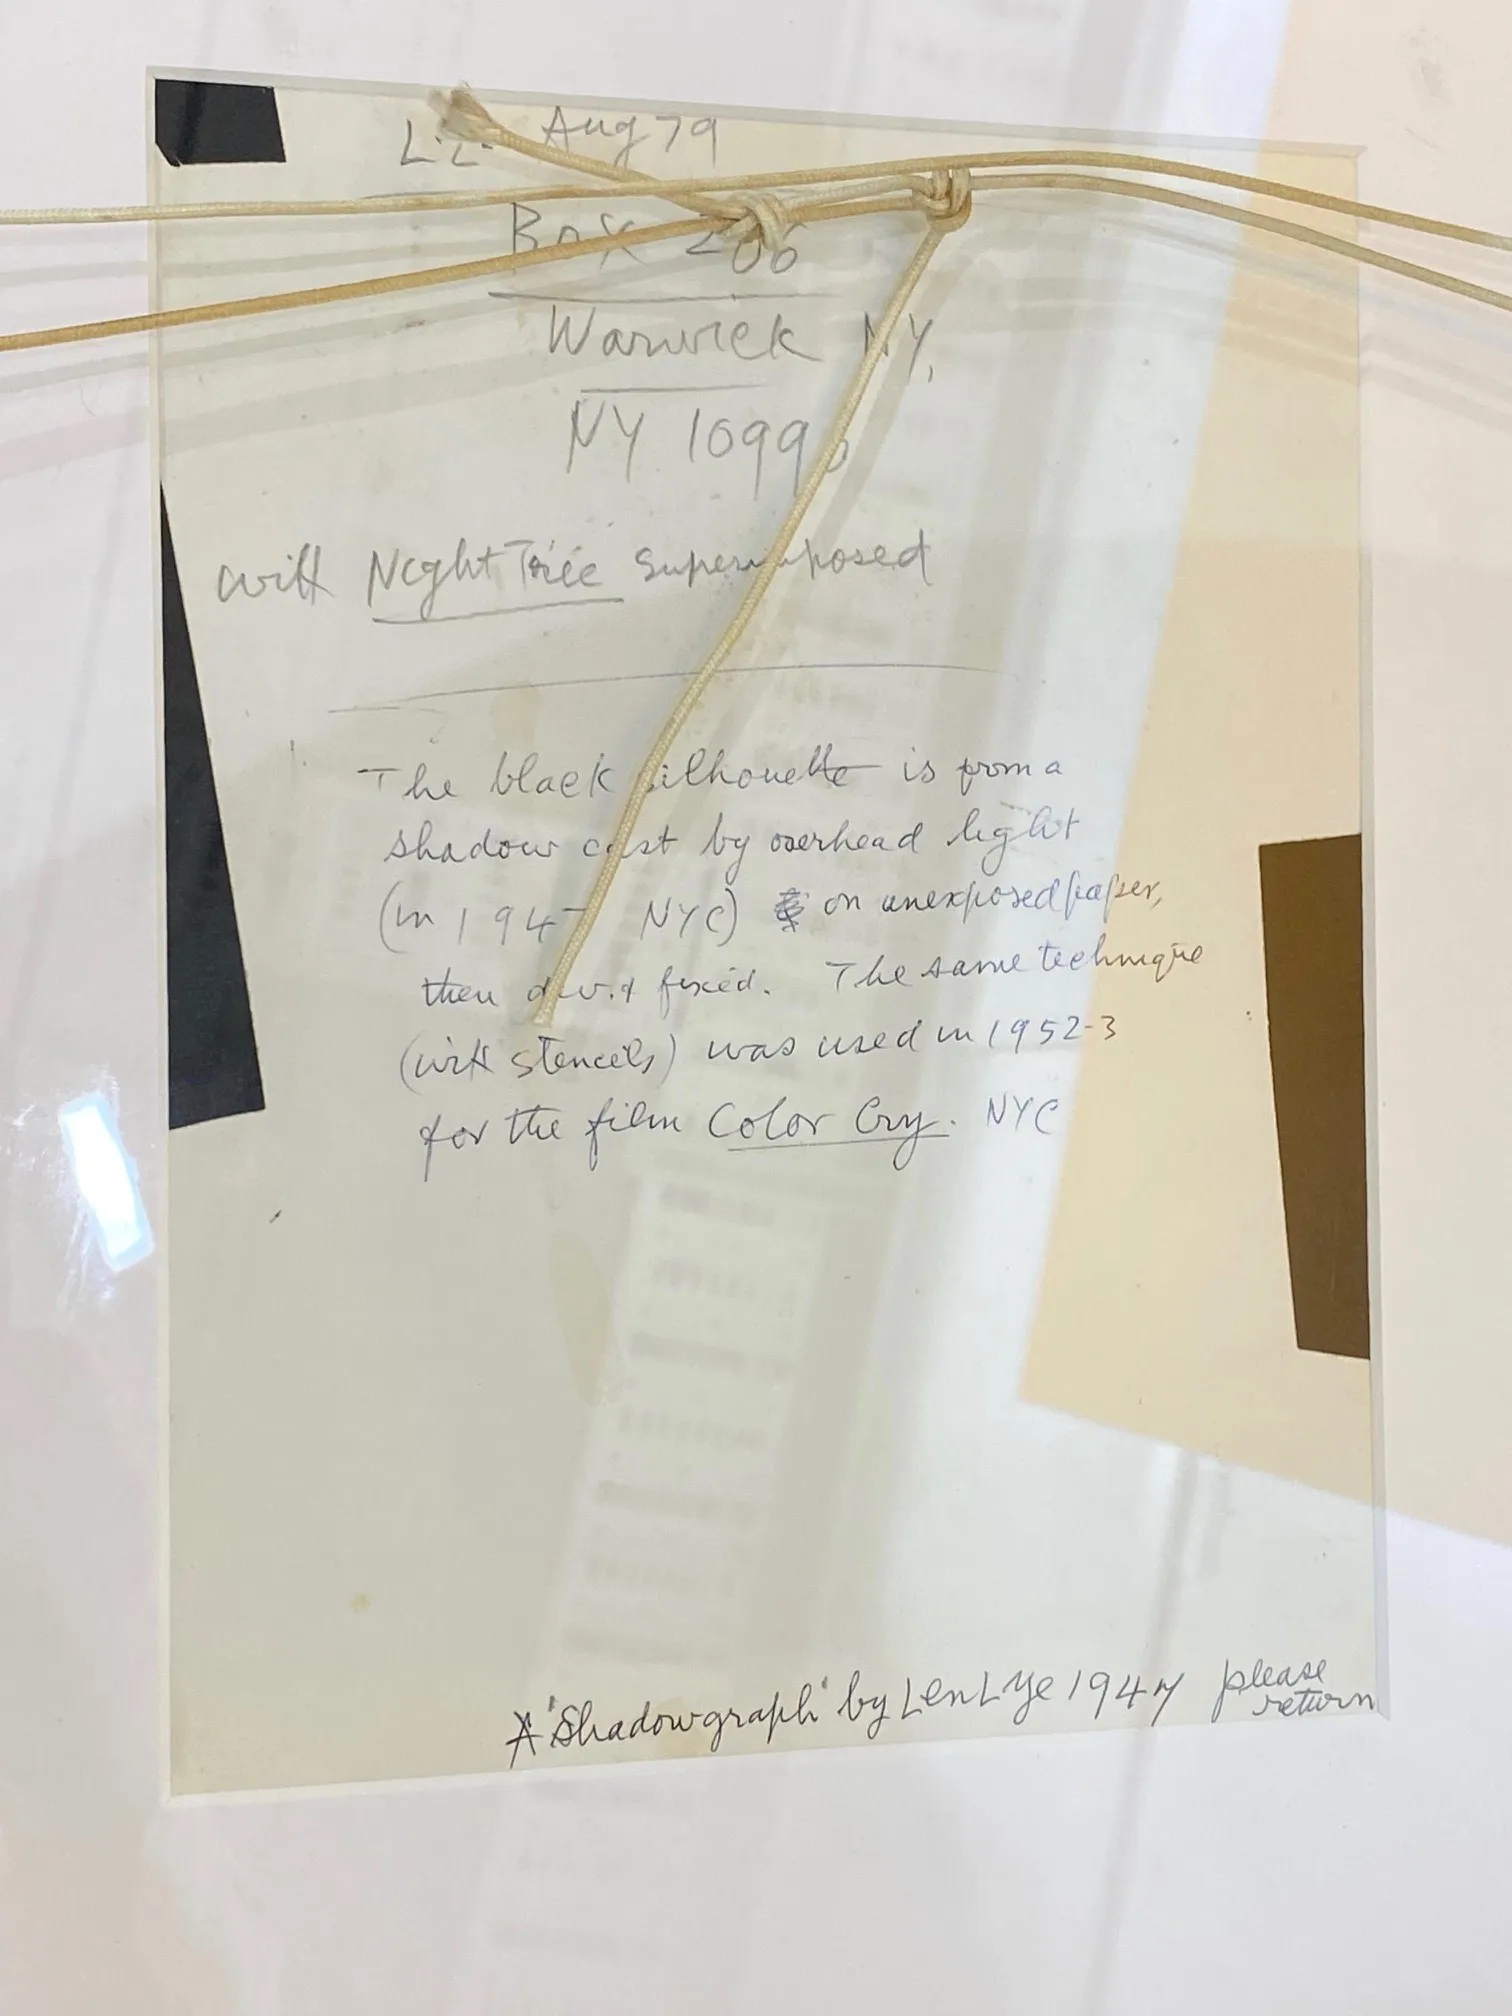 L.L. Aug 79
Box 206
Warwick NY,
NY 1099
with Night Tree Superimposed
The black silhouette is from a
shadow cast by overhead light
(in 194 NYC) on unexposed paper,
then dev. & fixed. The same technique
(with stencils) was used in 1952-3
for the film Color Cry. NYC
A "Shadowgraph" by Len Lye 1947 please
return